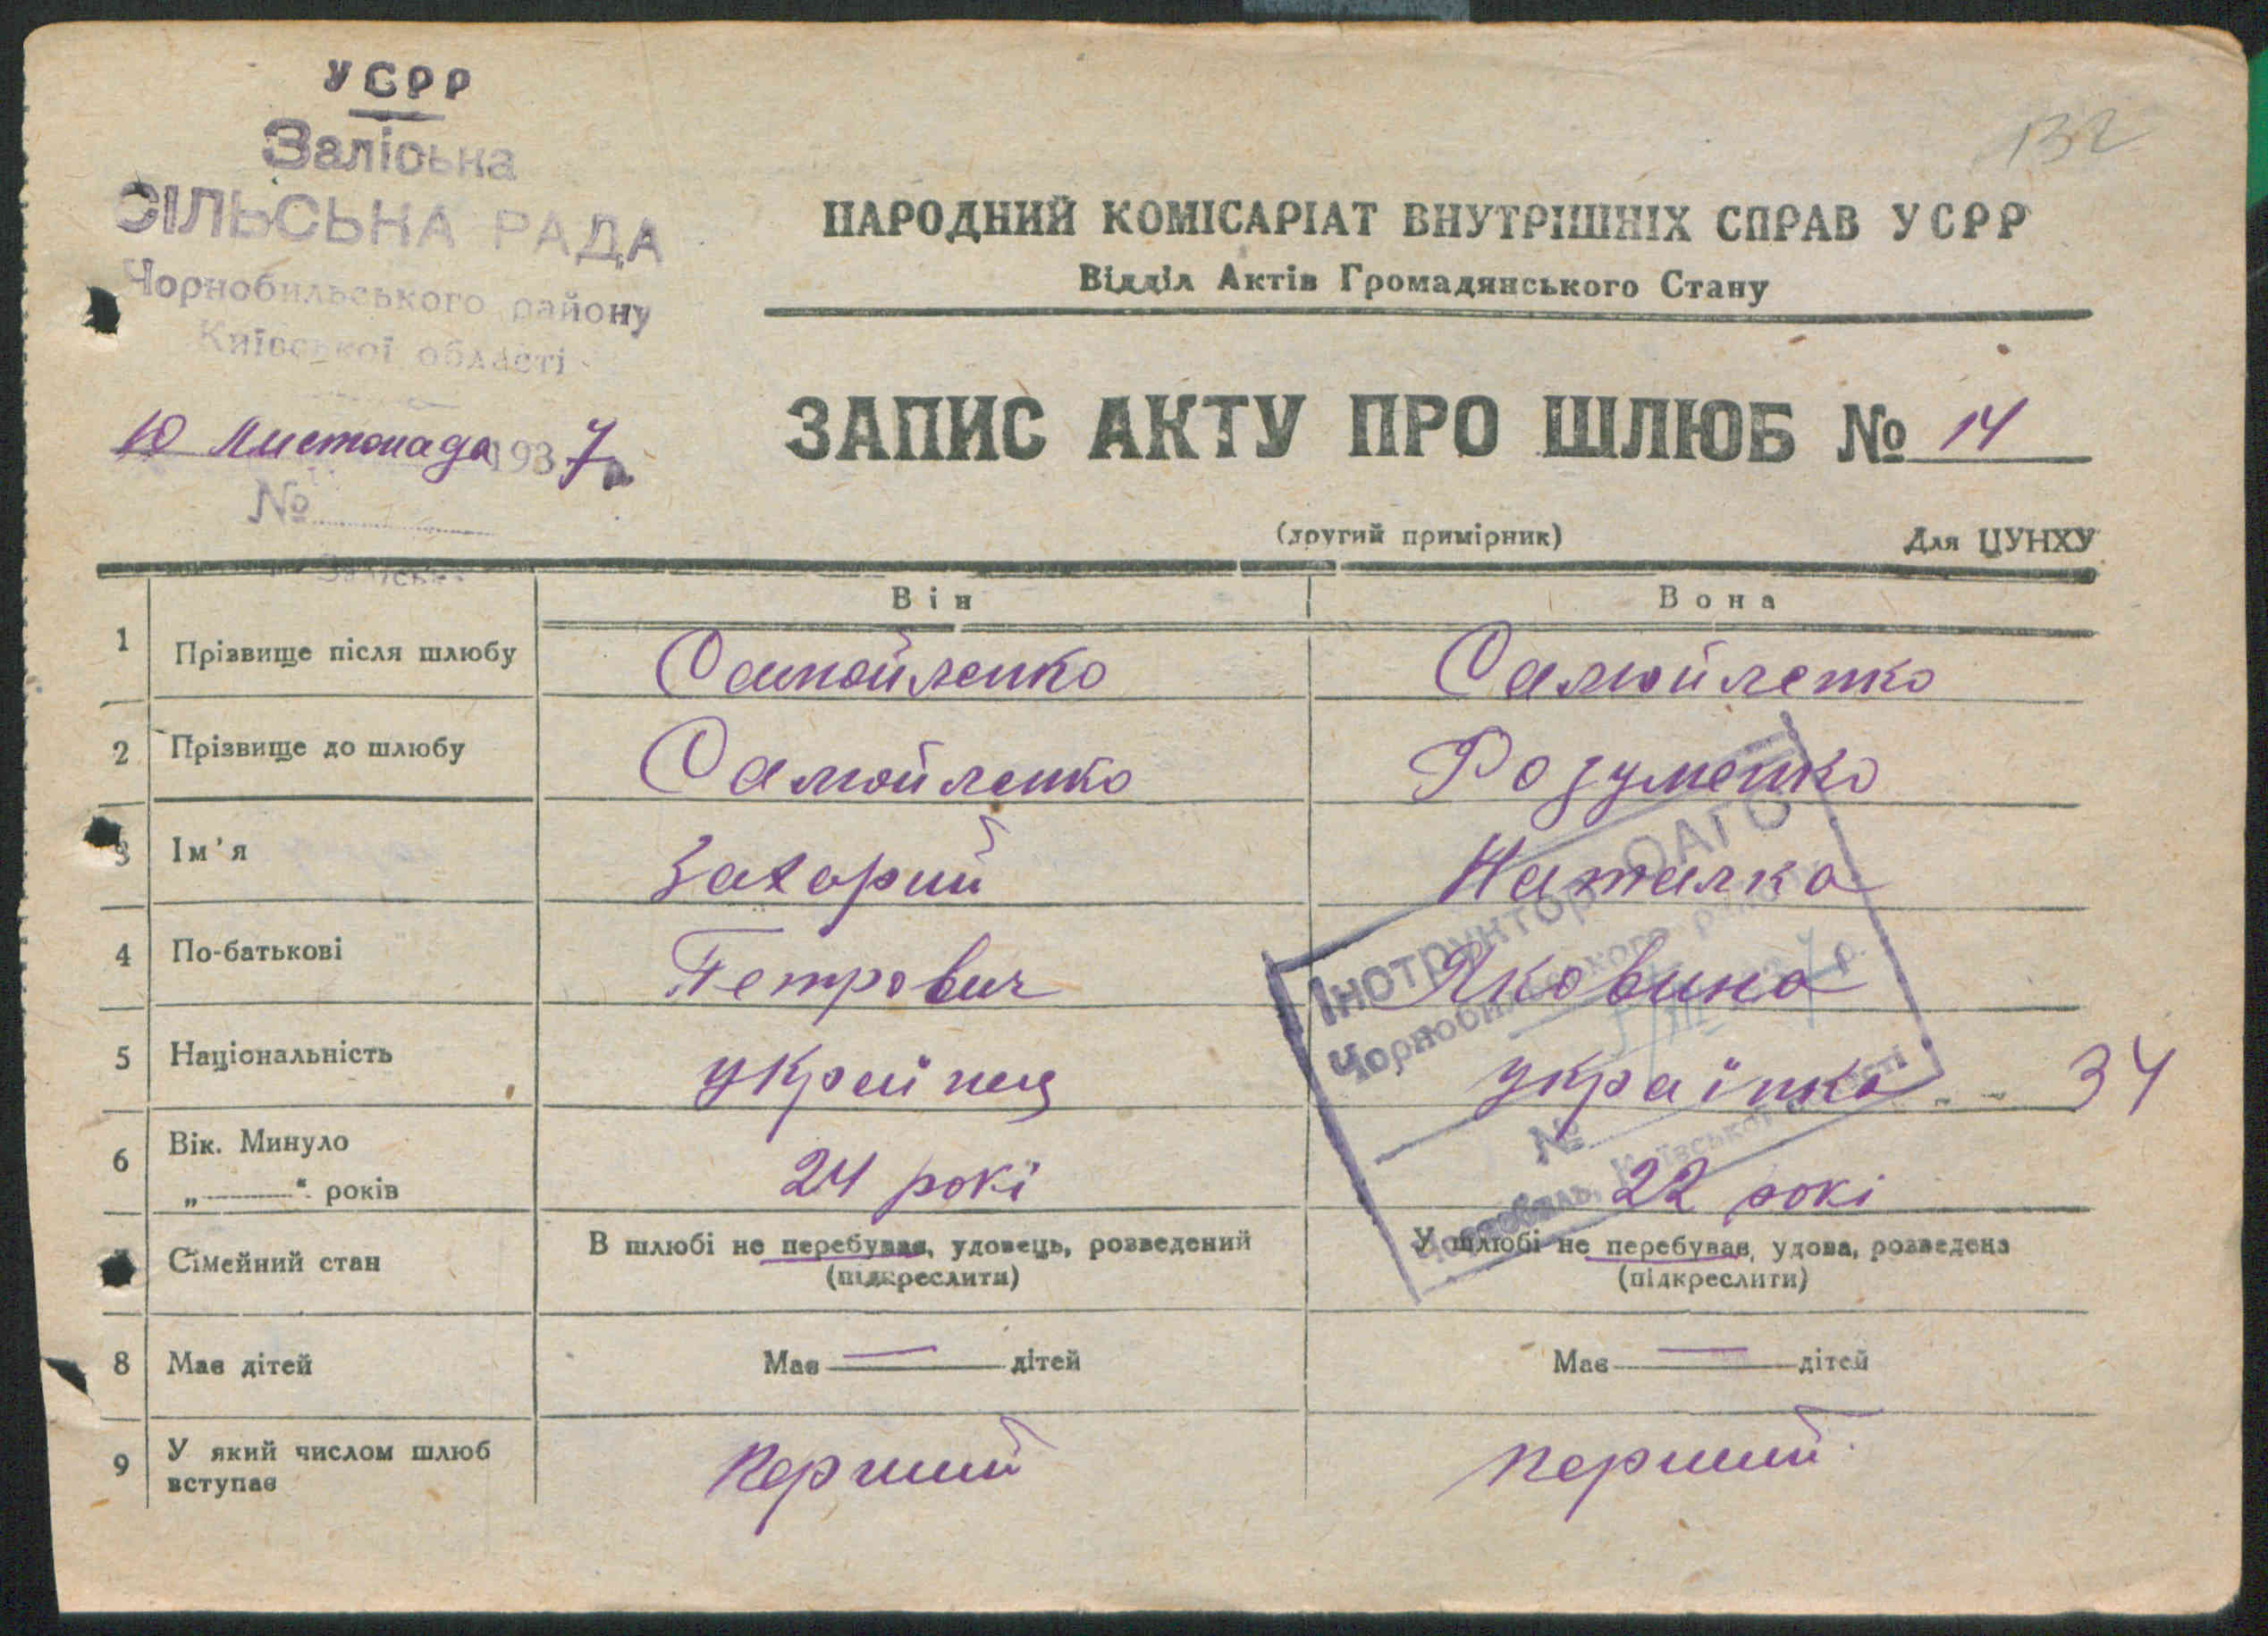 132
УСРР
Заліська
СІЛЬСЬКА РАДА
Чорнобильського району
Київської області
10 Листопада 1937 р.
№
НАРОДНИЙ КОМІСАРІАТ ВНУТРІШНІХ СПРАВ УСРР
Відділ Актів Громадянського Стану
ЗАПИС АКТУ ПРО ШЛЮБ № 14
(другий примірник) Для ЦУНХУ
Він Вона
1 Прізвище після шлюбу Самойленко Самойленко
2 Прізвище до шлюбу Самойленко Розуменко
3 Ім'я Захорий Наталка
4 По-батькові Петрович Яковина
5 Національність українец україінка 34
6 Вік. Минуло
„———“ років 24 рокі 22 рокі
7 Сімейний стан В шлюбі не перебував, удовець, розведений У шлюбі не перебував, удова, розведена
(підкреслити) (підкреслити)
8 Має дітей Має — дітей Має — дітей
9 У який числом шлюб
вступає Перший Перший
Інструктор ОАГС
Чорнобильського району
№
Чорнобиль, Київської області